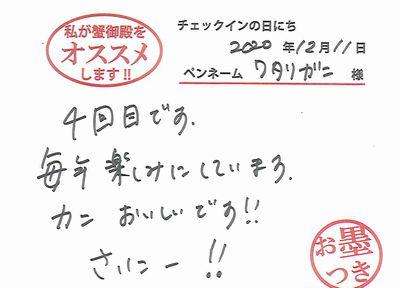 私が蟹御殿を
オススメ
します!!
チェックインの日にち
2020年12月11日
ペンネーム ワタリガニ 様
4回目です.
毎年楽しみにしています.
カニ おいしいです!!
さいこー!!
お墨
つき